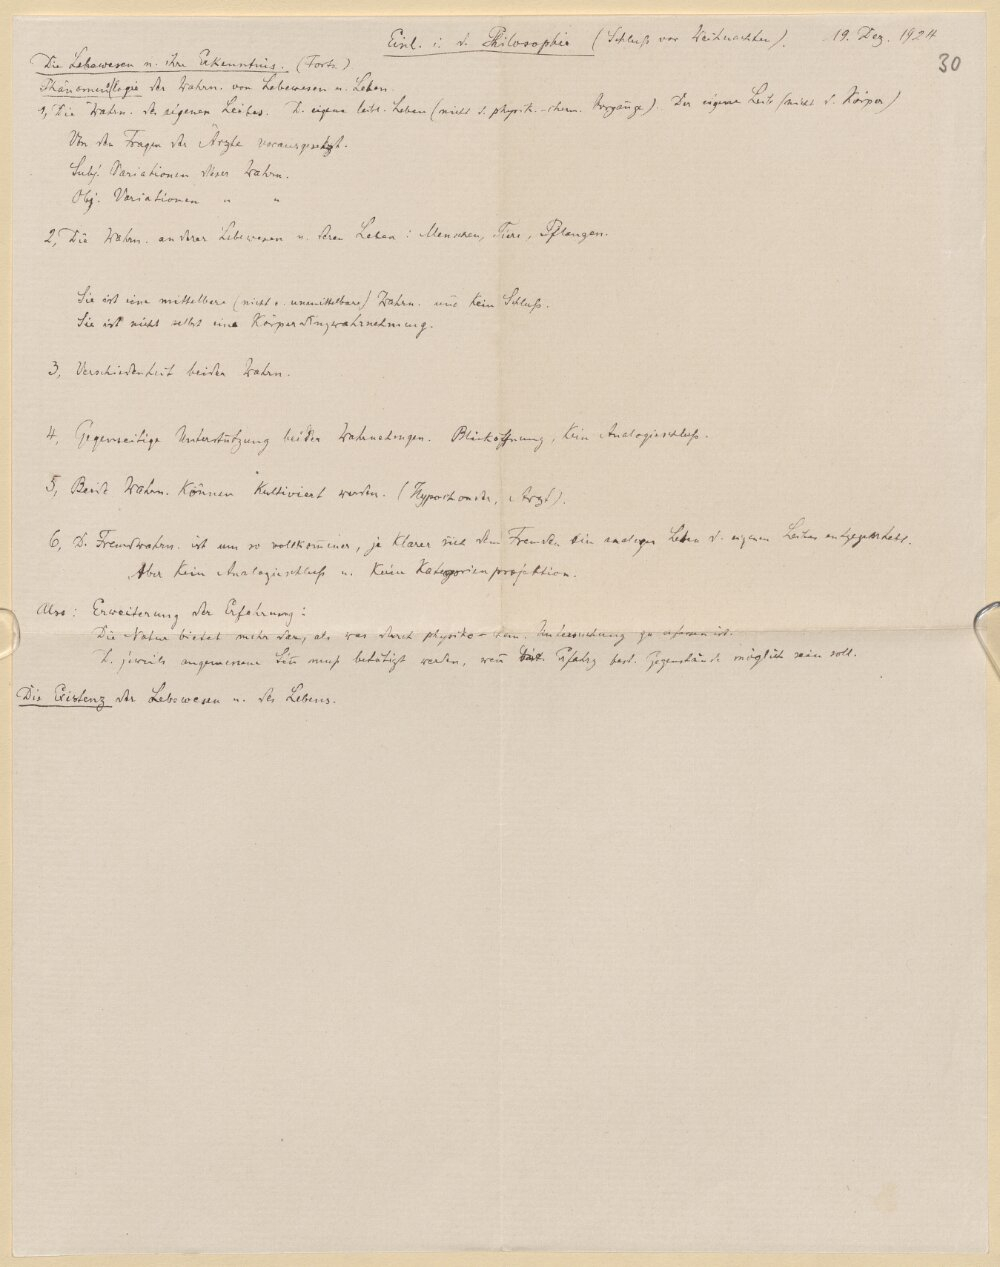 Einl. i. d. Philosophie (Schluß vor Weihnachten). 19. Dez. 1924
30
Die Lebewesen u. ihre Erkenntnis. (Forts.)
Phänomenologie der Wahrn. von Lebewesen u. Leben.
1, Die Wahrn. des eigenen Leibes. D. eigene leibl. Leben (nicht d. physik.-chem. Vorgänge). Der eigene Leib (nicht d. Körper)
Von den Fragen der Ärzte vorausgesetzt.
Subj. Variationen dieser Wahrn.
Obj. Variationen " "
2, Die Wahrn. anderer Lebewesen u. deren Leben: Menschen, Tiere, Pflanzen.
Sie ist eine mittelbare (nicht e. unmittelbare) Wahrn. und kein Schluß.
Sie ist nicht selbst eine Körperdingwahrnehmung.
3, Verschiedenheit beider Wahrn.
4, Gegenseitige Unterstützung beider Wahrnehmungen. Blicköffnung, kein Analogieschluß.
5, Beide Wahrn. können kultiviert werden. (Hypochonder, Arzt).
6, D. Fremdwahrn. ist um so vollkommener, je klarer sich dem Fremden ein analoges Leben d. eigenen Leibes entgegenhebt.
Aber kein Analogieschluß u. keine Kategorienprojektion.
Also: Erweiterung der Erfahrung:
Die Natur bietet mehr dar, als was durch physiko-chem. Untersuchung zu erfassen ist.
D. jeweils angemessene Sinn muß betätigt werden, wenn Erfahrg best. Gegenstände möglich sein soll.
Die Existenz der Lebewesen u. des Lebens.